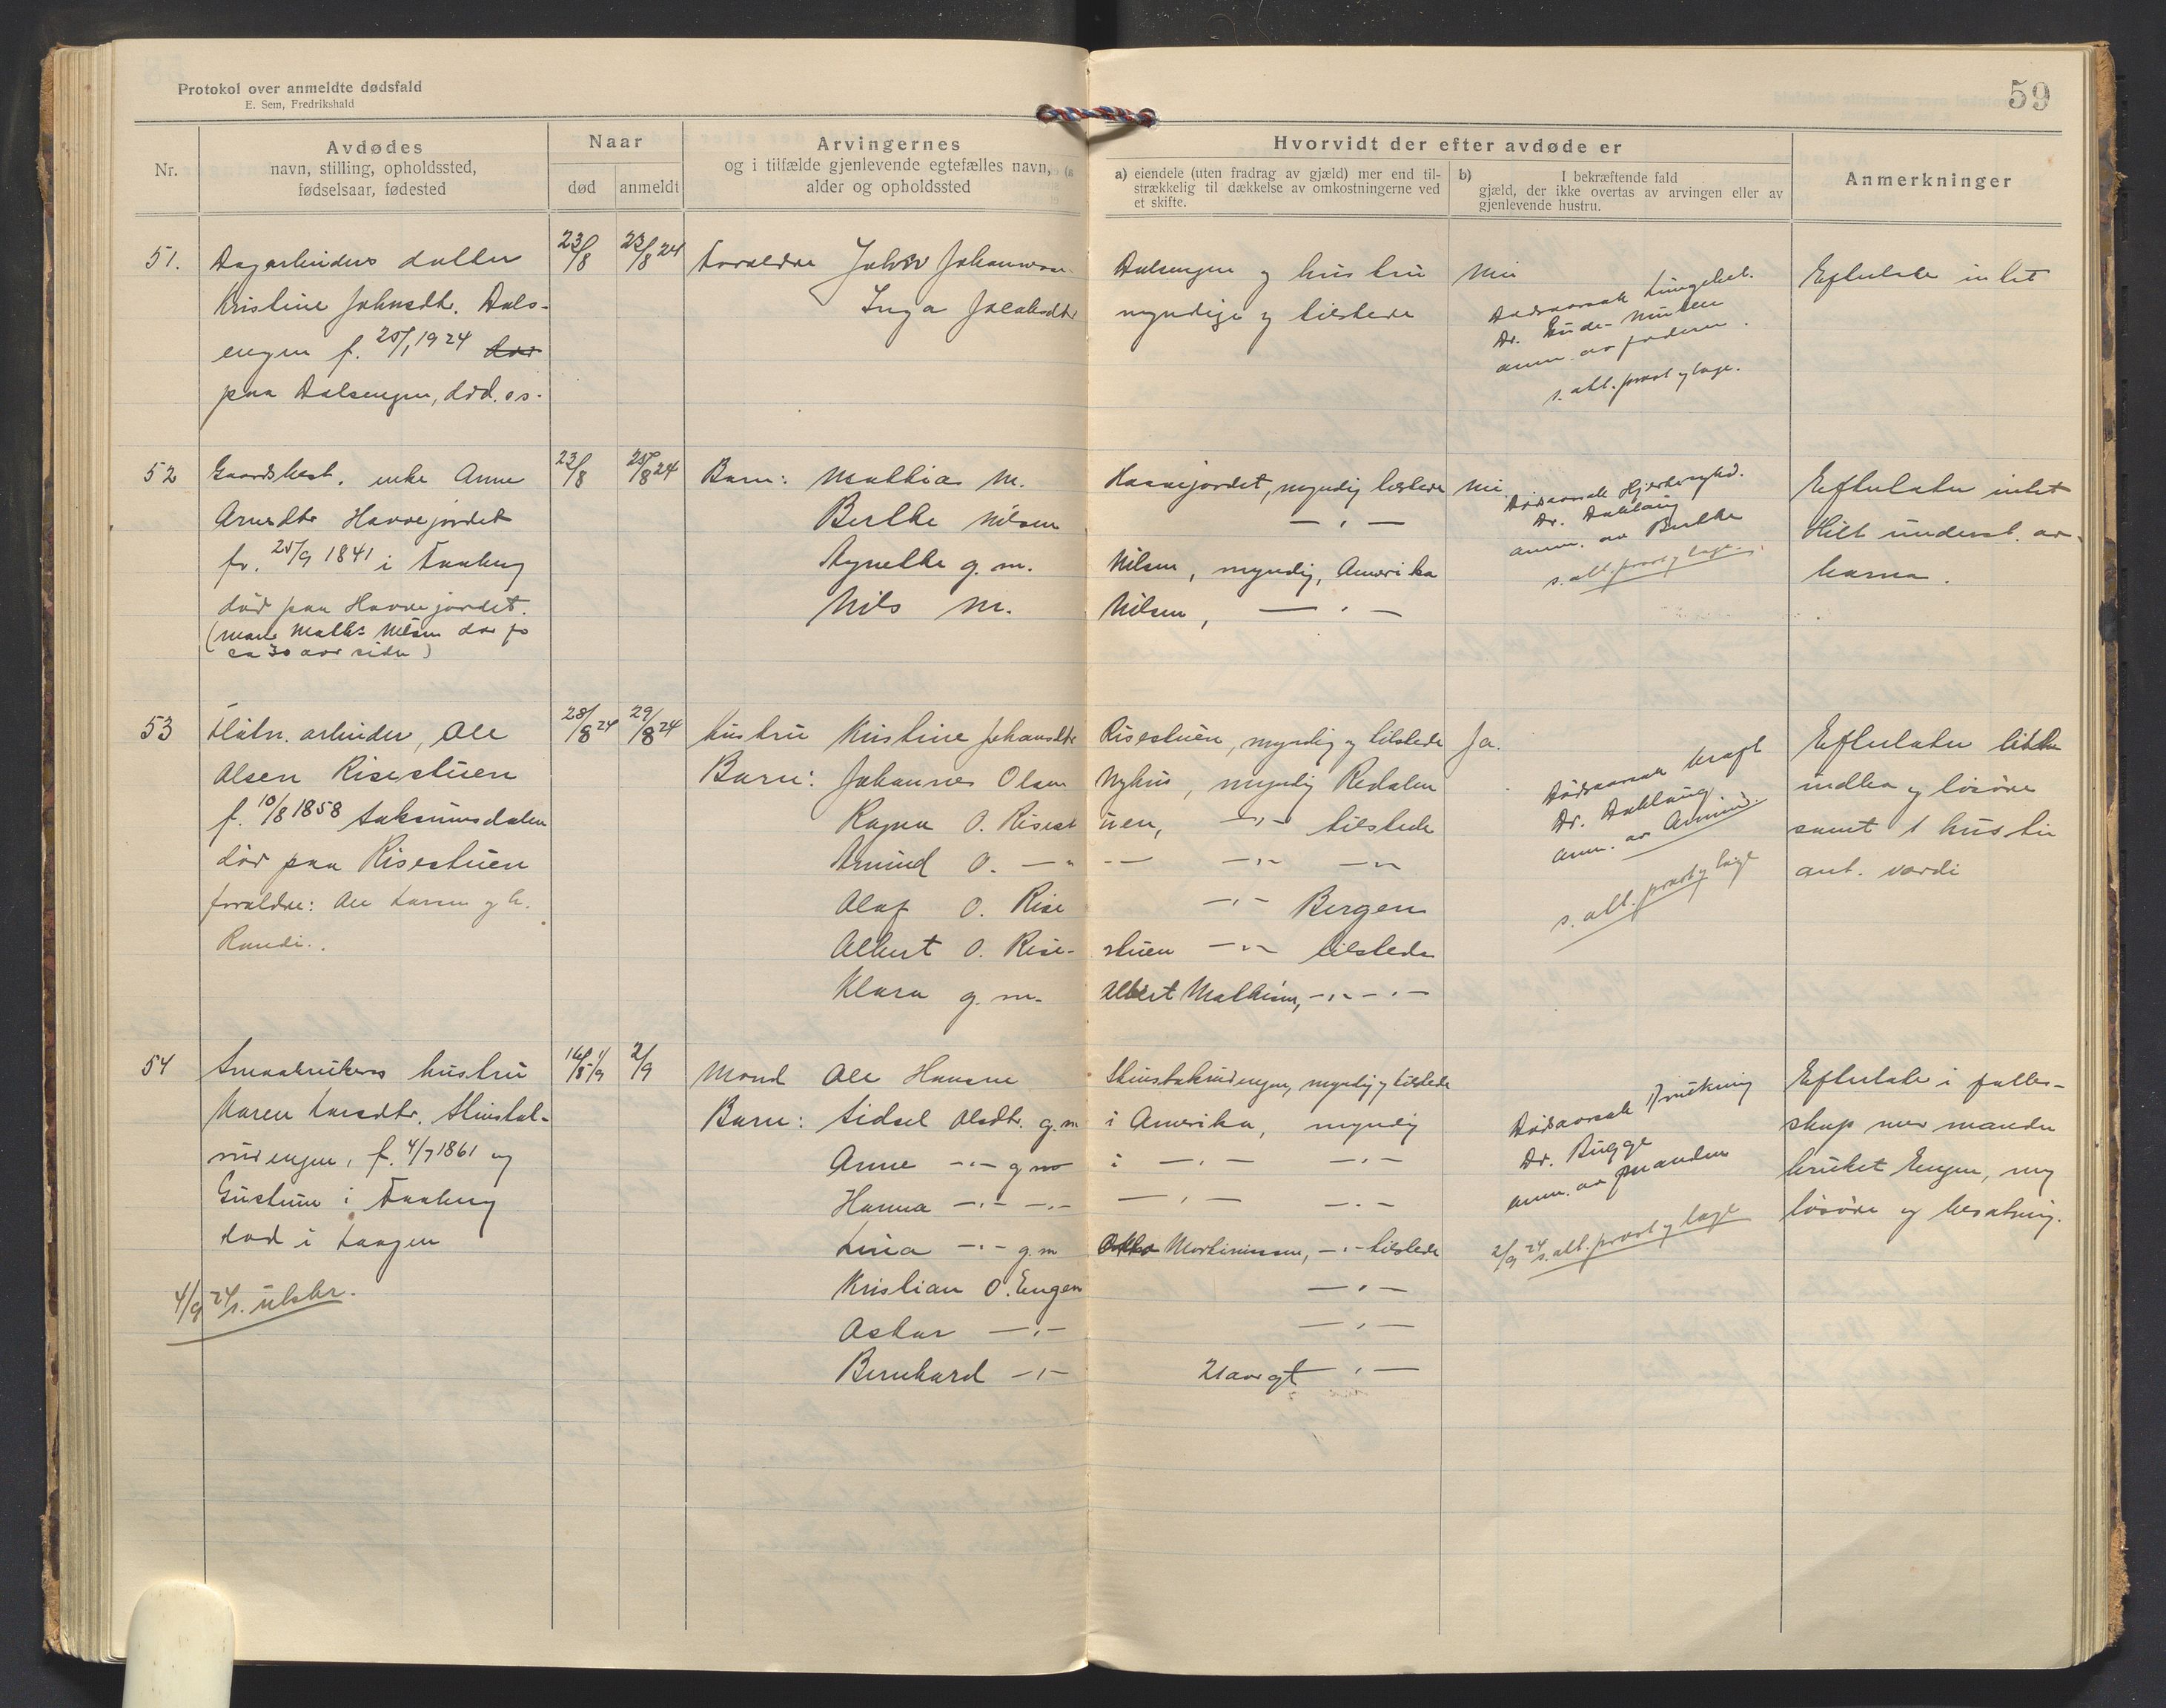 Protokol over anmeldte dødsfald
E. Sem, Fredrikshald
59
Nr.
Avdødes
navn, stilling, opholdssted,
fødselsaar, fødested
Naar
død
anmeldt
Arvingernes
og i tilfælde gjenlevende egtefælles navn,
alder og opholdssted
Hvorvidt der efter avdøde er
a) eiendele (uten fradrag av gjæld) mer end til-
strækkelig til dækkelse av omkostningerne ved
et skifte.
b) I bekræftende fald
gjæld, der ikke overtas av arvingen eller av
gjenlevende hustru.
Anmerkninger
51.
Dagarbeiders datter
Kristine Johnsdtr. Dals-
engen f. 25/1 1924
paa Dalsengen, død. os.
23/8
23/8 24
Forældre John Johannesen
Inga Jacobsdtr
Dalsengen og hustru
myndige og tilstede
Nei
Dødsaarsak Lungebet.
Dr.
anm. av faderen.
s. att. prost og lage.
Efterlate intet
52
Gaardbest. enke Anne
Arnesdtr Haavejordet
fr. 25/9 1841 i Faaberg
død paa Haavejordet.
(mand Math. Nilsen død for
ca 30 aar siden)
23/8
25/8 24
Barn: Mathias M.
Berthe Nilsen
Agnethe g. m.
Nils M.
Haavejordet, myndig tilstede
— " —
Nilsen, myndig, Amerika
Nilsen, — " —
Nei
Dødsaarsak Hjertesykd.
Dr. Dahlaug
anm. av Berthe
s. att. prost og lage.
Efterlater intet
Hat underst. av
barna.
53
Fløtn. arbeider, Ole
Olsen Risestuen
f. 10/8 1858 Saksumsdalen
død paa Risestuen
forældre: Ole Larsen og h.
Randi.
28/8 24
29/8 24
Hustru Kristine Johansdtr
Barn: Johannes Olsen
Ragna O. Risest
Amund O. — "
Olaf O. Rise
Albert O. Rise-
Klara g. m.
Risestuen, myndig og tilstede
Nyhus, myndig Redalen
uen, — " — tilstede
— — " — — " —
— " — Bergen
stuen — " — tilstede
Albert Mathisen, — " — " —
Ja.
Dødsaarsak kræft
Dr. Dahlaug
anm. av Amund.
s. att. prost og lage
Efterlater litt
indbo og løsøre
samt 1 hus til
ant. værdi
54
Smaabrukers hustru
Karen Larsdtr. Stenstad-
rudengen, f. 4/7 1861 og
i Faaberg
død i Laagen
4/9 24 s. utskr.
16/8 1/9
2/9
Mand Ole Hansen
Barn: Sidsel Olsdtr. g. m
Anne — " — g m
Hanna — " — — " —
Lina — " — g. m
Kristian O. Engen
Oskar — " —
Bernhard — " —
Stenstadrudengen, myndig og tilstede
i Amerika, myndig
i — " — — " —
— " — — " —
Otto Martinissen, — " — tilstede
— " —
— " —
21 aar gl — " —
Dødsaarsak Drukning
Dr. Bugge
anm. av manden
2/9 24 s. att. prost og lage
Efterlate i fælles-
skap med manden
bruket Engen, med
løsøre og besætning.